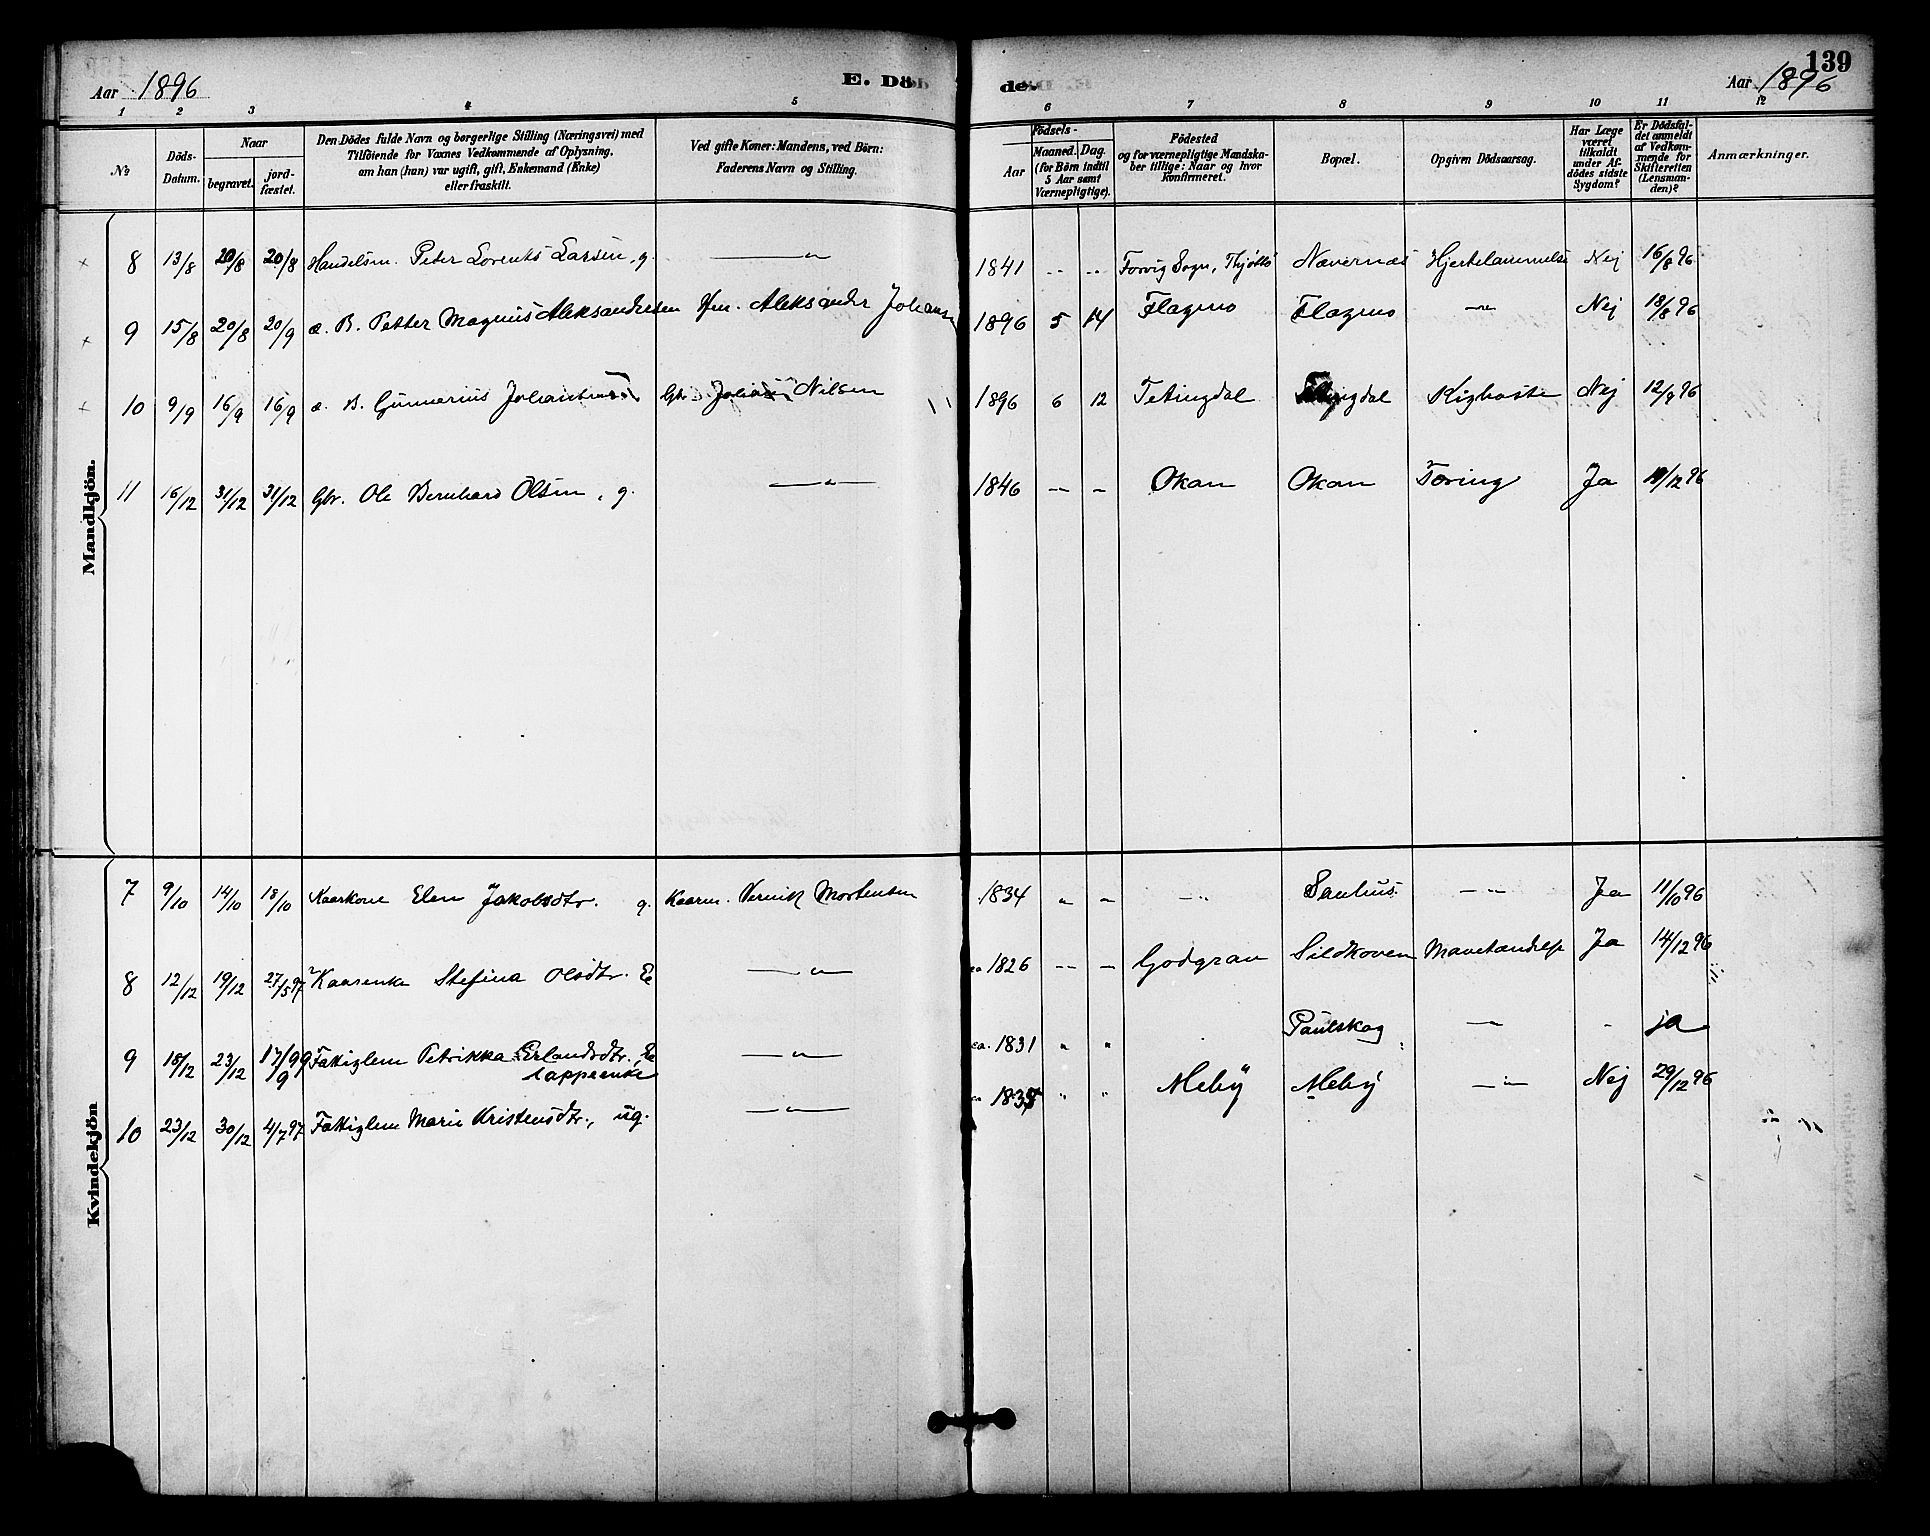 139
Aar 1896
E. Döde.
Aar 1896
1 2 3 4 5 6 7 8 9 10 11 12
№
Döds-Datum.
Naar
begravet.
jord-fæstet.
Den Dödes fulde Navn og borgerlige Stilling (Næringsvei) med
Tilföiende for Voxnes Vedkommende af Oplysning,
om han (hun) var ugift, gift, Enkemand (Enke)
eller fraskilt.
Ved gifte Koner: Mandens, ved Börn:
Faderens Navn og Stilling.
Födsels-
Aar
Maaned. Dag.
(for Börn indtil
5 Aar samt
Værnepligtige).
Födested
og for værnepligtige Mandska-
ber tillige: Naar og hvor
konfirmeret.
Bopæl.
Opgiven Dödsaarsag.
Har Læge
været
tilkaldt
under Af-
dödes sidste
Sygdom?
Er Dödsfal-
det anmeldt
af Vedkom-
mende for
Skifteretten
(Lensman-
den)?
Anmærkninger.
Mandkjön.
8 13/8 20/8 20/8 Handelsm. Peter Lorents Larsen, g. —"— 1841 .. .. Forvig Sogn, Thjøttø Nævernæs Hjertelammelse Nej 16/8 96
9 15/8 20/8 20/9 æ. B. Petter Magnus Aleksandersen Hm. Aleksander Johansen 1896 5 14 Flagmo Flagmo —"— Nej 18/8 96
10 9/9 16/9 16/9 æ. B. Gunnerius Gbr. Nilsen 1896 6 12 Tetingdal Kighoste Nej 12/9 96
11 16/12 31/12 31/12 Gbr. Ole Bernhard Olsen, g. —"— 1846 — — Okan Okan Tæring Ja /12 96
Kvindekjön
7 9/10 14/10 18/10 Kaarkone Elen Jakobsdtr. g. Kaarm. Mortensen 1834 " " —"— —"— Ja 11/10 96
8 12/12 19/12 27/5 97 Kaarenke Stefina Olsdtr. E —"— ca 1826 -- — Godgran Sildhoven Ja 14/12 96
9 18/12 23/12 17/9 99 Fattiglem Petrikka Erlandsdtr., E
lappeenke —"— ca. 1831 " " Paulskog —"— - ja
10 23/12 30/12 4/7 97 Fattiglem Marie Kristensdtr., ug. —"— ca " " Meby Meby —"— Nej 29/12 96